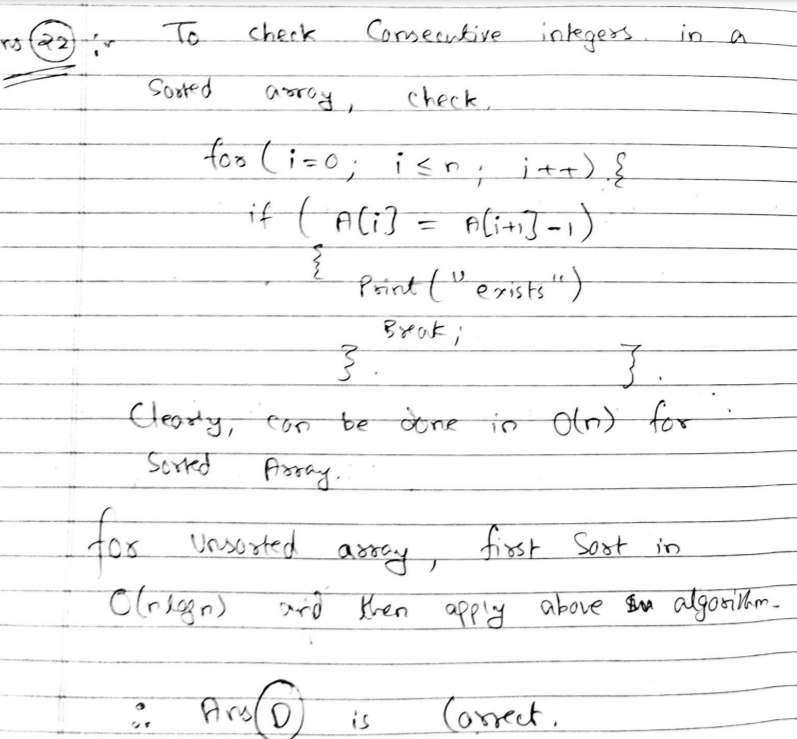 ns 22 :-  To check Consecutive integers. in a
Sorted array, check,
for ( i=0; i≤n; i++) {
if ( A[i] = A[i+1]-1)
{
Print ("exists")
Break;
} . } .
Clearly, can be done in O(n) for
Sorted Array.
for unsorted array, first Sort in
O(nlogn) and then apply above algorithm.
∴ Ans D is Correct.